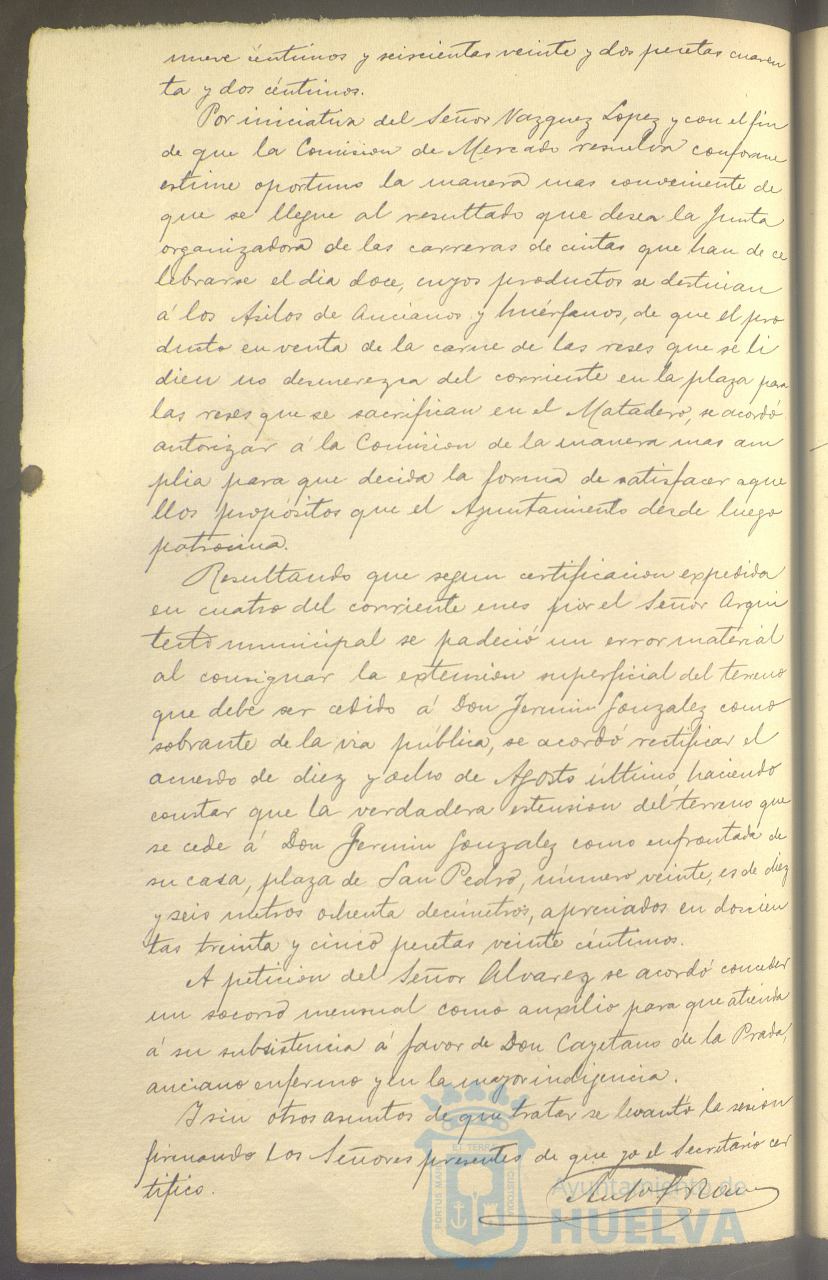 nueve céntimos y seiscientas veinte y dos pesetas cuaren
ta y dos céntimos.
Por iniciativa del Señor Vazquez Lopez y con el fin
de que la Comision de Mercado resuelva conforme
estime oportuno la manera mas conveniente de
que se llegue al resultado que desea la Junta
organizadora de las carreras de cintas que han de ce
lebrarse el dia doce, cuyos productos se destinan
á los Asilos de Ancianos y huérfanos, de que el pro
ducto en venta de la carne de las reses que se li
dien no desmerezca del corriente en la plaza para
las reses que se sacrifican en el Matadero, se acordó
autorizar á la Comision de la manera mas am
plia para que decida la forma de satisfacer aque
llos propósitos que el Ayuntamiento desde luego
patrocina.
Resultando que segun certificacion expedida
en cuatro del corriente mes por el Señor Arqui
tecto municipal se padeció un error material
al consignar la extension superficial del terreno
que debe ser cedido á Don Fermin Gonzalez como
sobrante de la via pública, se acordó rectificar el
acuerdo de diez y ocho de Agosto último, haciendo
constar que la verdadera estension del terreno que
se cede á Don Fermin Gonzalez como enfrontada de
su casa, plaza de San Pedro, número veinte, es de diez
y seis metros ochenta decímetros, apreciados en doscien
tas treinta y cinco pesetas veinte céntimos.
A peticion del Señor Alvarez se acordó conceder
un socorro mensual como auxilio para que atienda
á su subsistencia á favor de Don Cayetano de la Prada,
anciano enfermo y en la mayor indigencia.
Y sin otros asuntos de que tratar se levantó la sesion
firmando los Señores presentes de que yo el Secretario cer
tifico.
Ayuntamiento de
HUELVA
PORTUS MARIS
ET TERRAE
CUSTODIA